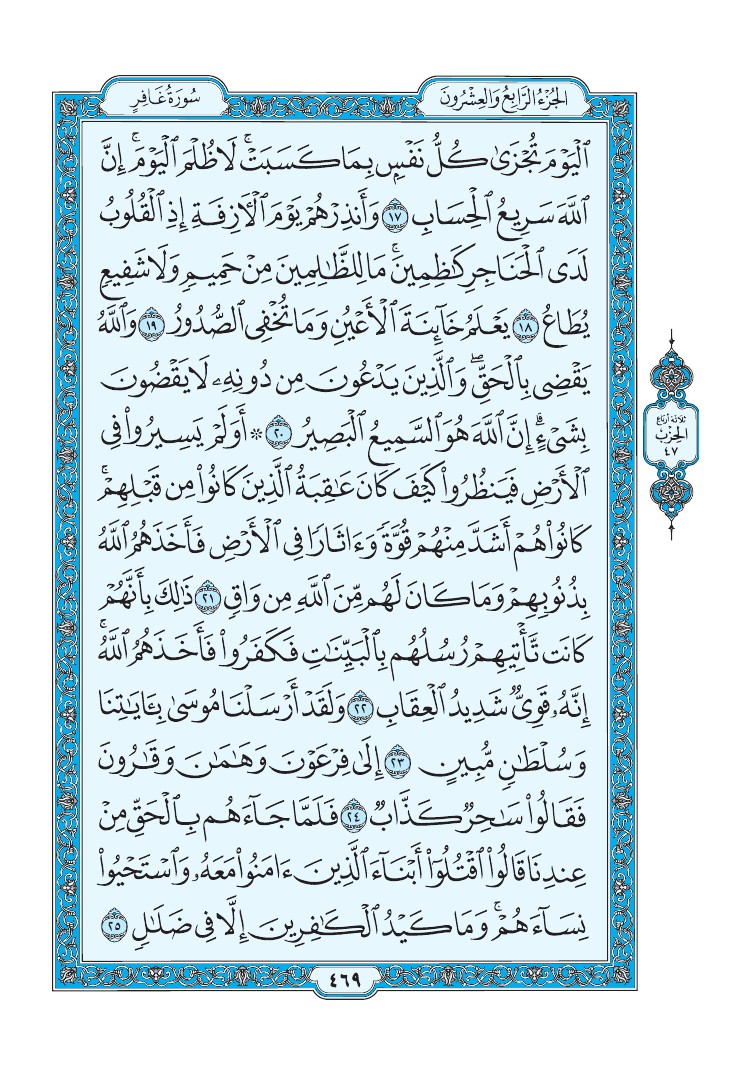 سُورَةُ غَافِرٍ
الجُزْءُ الرَّابِعُ وَالعِشْرُونَ
ٱلْيَوْمَ تُجْزَىٰ كُلُّ نَفْسٍۭ بِمَا كَسَبَتْۚ لَا ظُلْمَ ٱلْيَوْمَۚ إِنَّ
ٱللَّهَ سَرِيعُ ٱلْحِسَابِ ١٧ وَأَنذِرْهُمْ يَوْمَ ٱلْأَزِفَةِ إِذِ ٱلْقُلُوبُ
لَدَى ٱلْحَنَاجِرِ كَٰظِمِينَۚ مَا لِلظَّٰلِمِينَ مِنْ حَمِيمٍ وَلَا شَفِيعٍ
يُطَاعُ ١٨ يَعْلَمُ خَآئِنَةَ ٱلْأَعْيُنِ وَمَا تُخْفِى ٱلصُّدُورُ ١٩ وَٱللَّهُ
يَقْضِى بِٱلْحَقِّۖ وَٱلَّذِينَ يَدْعُونَ مِن دُونِهِۦ لَا يَقْضُونَ
بِشَىْءٍۗ إِنَّ ٱللَّهَ هُوَ ٱلسَّمِيعُ ٱلْبَصِيرُ ٢٠ * أَوَلَمْ يَسِيرُوا۟ فِى
ٱلْأَرْضِ فَيَنظُرُوا۟ كَيْفَ كَانَ عَٰقِبَةُ ٱلَّذِينَ كَانُوا۟ مِن قَبْلِهِمْۚ
كَانُوا۟ هُمْ أَشَدَّ مِنْهُمْ قُوَّةً وَءَاثَارًا فِى ٱلْأَرْضِ فَأَخَذَهُمُ ٱللَّهُ
بِذُنُوبِهِمْ وَمَا كَانَ لَهُم مِّنَ ٱللَّهِ مِن وَاقٍ ٢١ ذَٰلِكَ بِأَنَّهُمْ
كَانَت تَّأْتِيهِمْ رُسُلُهُم بِٱلْبَيِّنَٰتِ فَكَفَرُوا۟ فَأَخَذَهُمُ ٱللَّهُۚ
إِنَّهُۥ قَوِىٌّ شَدِيدُ ٱلْعِقَابِ ٢٢ وَلَقَدْ أَرْسَلْنَا مُوسَىٰ بِـَٔايَٰتِنَا
وَسُلْطَٰنٍ مُّبِينٍ ٢٣ إِلَىٰ فِرْعَوْنَ وَهَٰمَٰنَ وَقَٰرُونَ
فَقَالُوا۟ سَٰحِرٌ كَذَّابٌ ٢٤ فَلَمَّا جَآءَهُم بِٱلْحَقِّ مِنْ
عِندِنَا قَالُوا۟ ٱقْتُلُوٓا۟ أَبْنَآءَ ٱلَّذِينَ ءَامَنُوا۟ مَعَهُۥ وَٱسْتَحْيُوا۟
نِسَآءَهُمْۚ وَمَا كَيْدُ ٱلْكَٰفِرِينَ إِلَّا فِى ضَلَٰلٍ ٢٥
ثَلَاثَةُ أَرْبَاعِ
الحِزْبِ
٤٧
٤٦٩